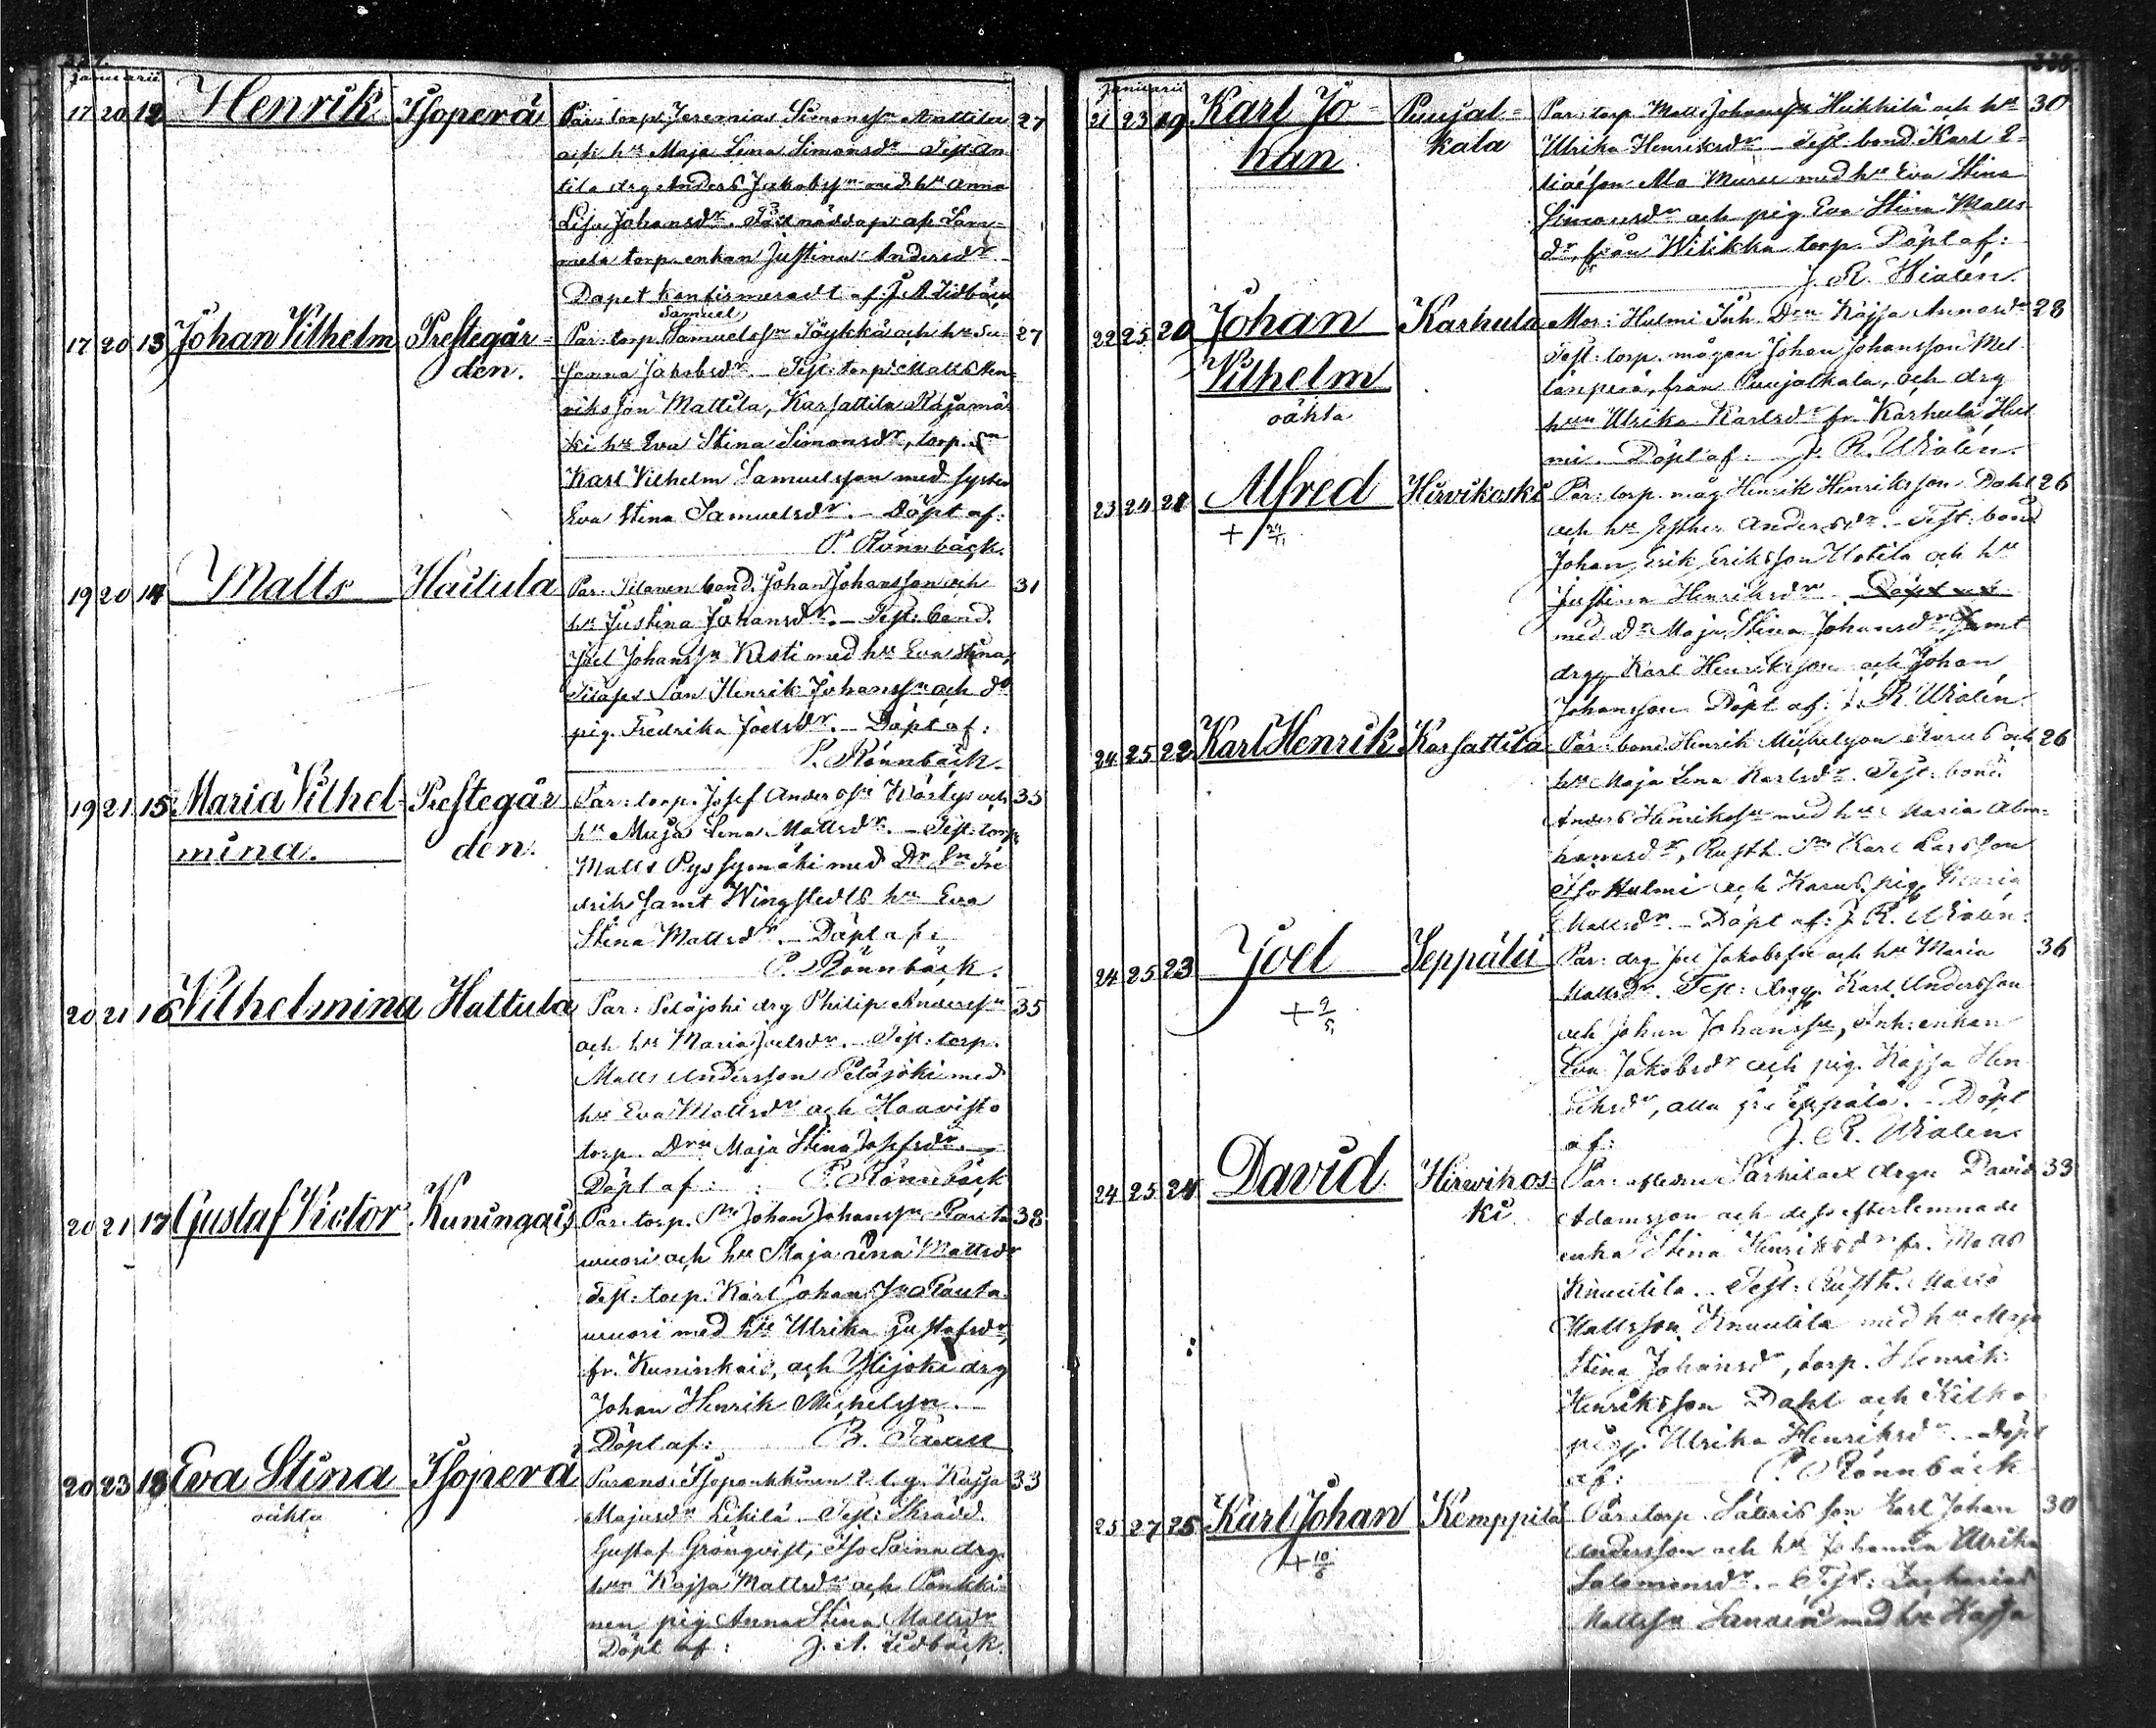 Januarii
17 20 12 Henrik Isoperä Par: torp. Jeremias Simonsson Anttila 27
och hu Maja Lena Simonsdr Test: An
tila drg Anders Jakobsson med hu Anna
Lisa Johansdr. Nöddöpt af Lam-
mela torp. enkan Justina Andersdr
Dopet konfirmeradt af: J. A. Lidbäck
Samuel
17 20 13 Johan Vilhelm Prestegår- Par: torp. Samuelsson Töykkä och hu Su 27
den. sanna Jakobsdr. - Test: torp: Matts Hen
riksson Mattila, Karsattila Rajamä
ki hu Eva Stina Simonsdr, torp. sn
Karl Vilhelm Samuelsson med syster
Eva Stina Samuelsdr. - Döpt af:
P. Rönnbäck.
19 20 14 Matts Haitula Par: bond. Johan Johansson och 31
hu Justina Johansdr. - Test: bond.
Joel Johansson Kesti med hu Eva Stina,
son Henrik Johansson och do
pig. Fredrika Joelsdr. - Döpt af:
P. Rönnbäck.
19 21 15 Maria Vilhel- Prestegår Par: torp. Josef Andersson Wärtys och 35
mina. den. hu Maja Lena Mattsdr. - Test: torp.
Matts Pyssymäki med Dr Sn Fre
drik samt Wingstedts hu Eva
Stina Mattsdr. - Döpt af:
P. Rönnbäck.
20 21 16 Vilhelmina Hattula Par: Peläjoki drg Philip Andersson 35
och hu Maria Joelsdr. - Test: torp.
Matts Andersson Peläjoki med
hu Eva Mattsdr och Haavisto
torp. Drn Maja Stina Josefsdr. -
Döpt af: P. Rönnbäck
20 21 17 Gustaf Victor Kuningais Par: torp. Sn Johan Johansson Rauta 38
wuori och hu Maja Lena Mattsdr
Test: torp. Karl Johansson Rauta
wuori med hu Ulrika Gustafsdr,
fr. Kuninkais, och Ylijoki drg
Johan Henrik Michelsson. -
Döpt af: B.
20 23 18 Eva Stina Isoperä Parens: Isoponkkinen Kajsa 33
oäkta Majasdr Test: Skrädd.
Gustaf Grönqvist, drg.
hun Kajsa Mattsdr och Ponkki-
nen pig. Anna Stina Mattsdr
Döpt af: J. A. Lidbäck.
Januarii
21 23 19 Karl Jo- Puujal- Par: torp. Matts Johansson Heikkilä och hu 30
han kala Ulrika Henriksdr - Test: bond. Karl E-
liaeson Ala med hu Eva Stina
Simonsdr och pig. Eva Stina Matts
dr, från Witikka torp. Döpt af:
J. R. Wialén.
22 25 20 Johan Karhula Mor: Hulmi Inh. Drn Kajsa Annasdr 28
Vilhelm Test: torp. mågen Johan Johansson
oäkta från Puujalkala, och drg
hun Ulrika Karlsdr fr. Karhula Hul
mi. Döpt af: J. R. Wialén.
23 24 21 Alfred Hirvikoski Par: torp. måg Henrik Henriksson Dahl 26
+ och hu Esther Andersdr. - Test: bond
Johan Erik Eriksson Uotila och hu
Justina Henriksdr. Döpt af
med Dr Maja Stina Johansdr, samt
drgg. Karl Henriksson och Johan
Johansson Döpt af: J. R. Wialén.
24 25 22 Karl Henrik Karsattila Par: bond. Henrik Michelsson och 26
hu Maja Lena Karlsdr. Test: bond.
Anders Henriksson med hu Maria Abra-
hamsdr, Rusth. Sn Karl Larsson
Iso Hulmi och pig. Maria
Mattsdr. - Döpt af: J. R. Wialén.
24 25 23 Joel Seppälä Par: drg Joel Jakobsson och hu Maria 36
+ 9/5 Mattsdr. Test: drgg. Karl Andersson
och Johan Johansson, Inh: enkan
Eva Jakobsdr och pig. Kajsa Hen
riksdr, alla fr. Seppälä. - Döpt
af: J. R. Wialén
24 25 24 David Hirvikos Par: aflidne drgn David 33
ki Adamsson och dess efterlemnade
enka Stina Henriksdr fr.
Knuutila. - Test: Rusth. Matts
Mattsson Knuutila med hu Maja
Stina Johansdr, torp. Henrik
Henriksson Dahl och
pig. Ulrika Henriksdr. - Döpt
af: P. Rönnbäck
25 27 25 Karl Johan Kemppilä Par: torp. son Karl Johan 30
+ 10/6 Andersson och hu Johanna Ulrika
Salomonsdr. - Test: Zacharias
Mattsson med hu Kajsa